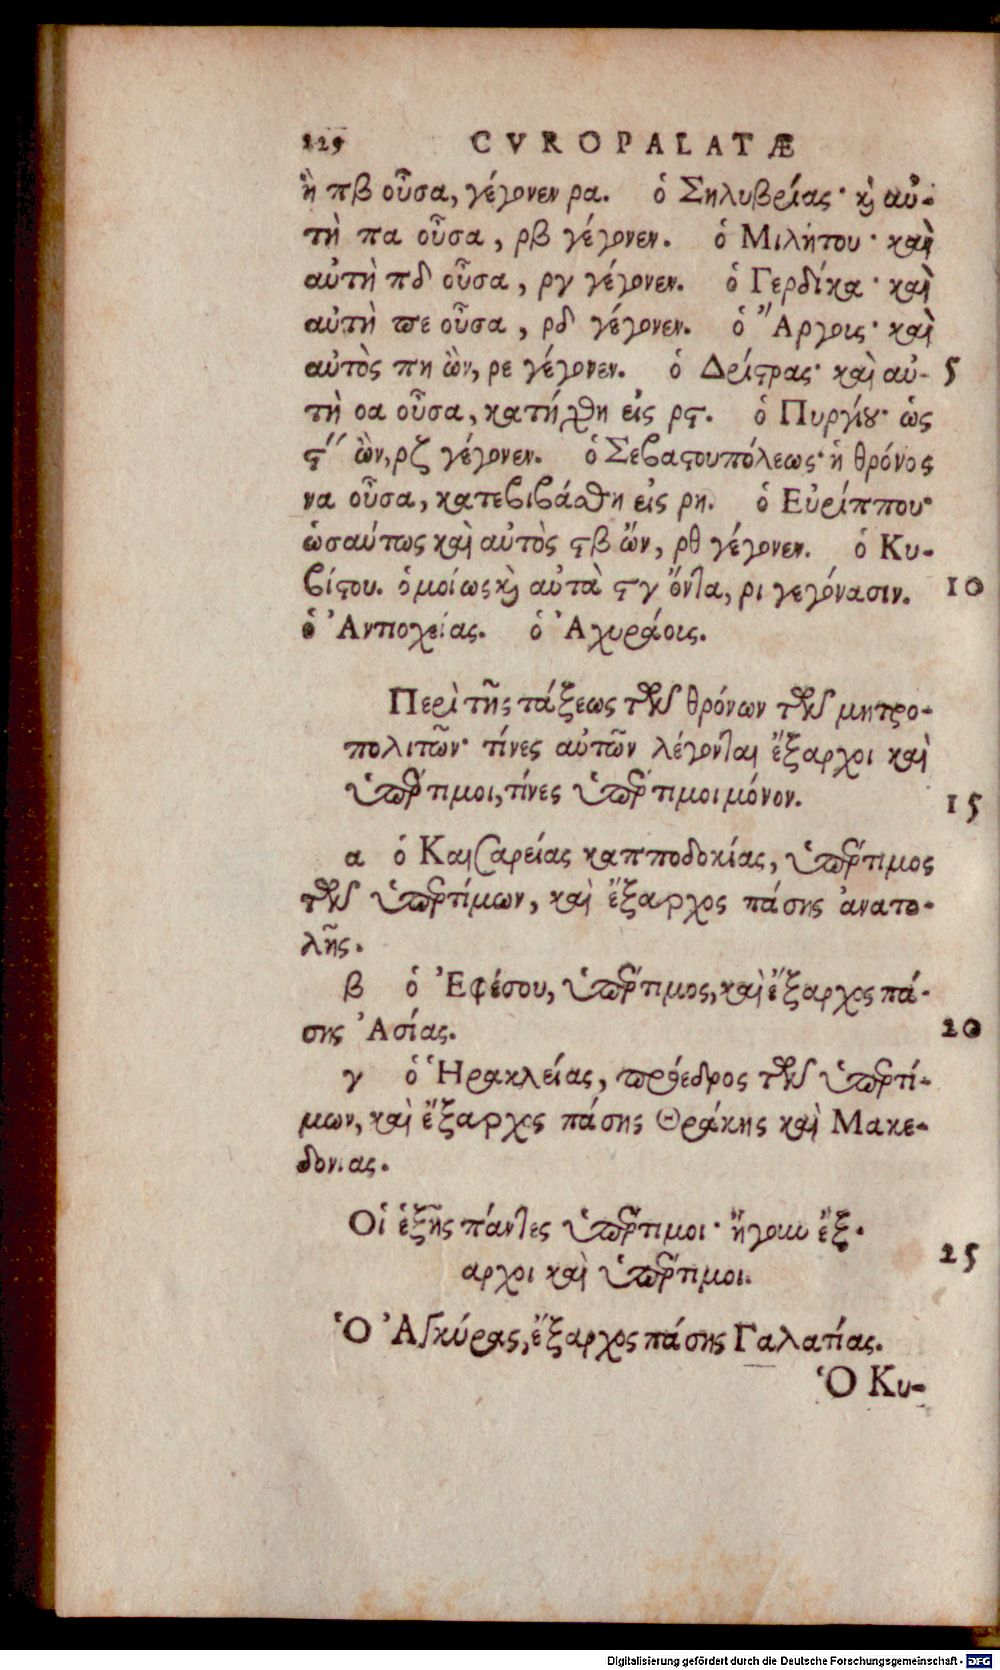 229 CVROPALATÆ
ἢ πβ οὖσα, γέγονεν ρα. ὁ Σηλυβρίας· καὶ αὐ-
τὴ πα οὖσα, ρβ γέγονεν. ὁ Μιλήτου· καὶ
αὐτὴ πδ οὖσα, ργ γέγονεν. ὁ Γερδίκα· καὶ
αὐτὴ πε οὖσα, ρδ γέγονεν. ὁ Ἄργοις· καὶ
αὐτὸς πη ὢν, ρε γέγονεν. ὁ Δρίστρας· καὶ αὐ- 5
τὴ οα οὖσα, κατήχθη εἰς ρϛ. ὁ Πυργίου· ὡς
ϛ″ ὢν, ρζ γέγονεν. ὁ Σεβαστουπόλεως· ἡ θρόνος
να οὖσα, κατεβιβάσθη εἰς ρη. ὁ Εὐρίππου·
ὡσαύτως καὶ αὐτὸς ϛβ ὢν, ρθ γέγονεν. ὁ Κυ-
βίστου. ὁμοίως καὶ αὐτὰ ϛγ ὄντα, ρι γεγόνασιν. 10
ὁ Ἀντιοχείας. ὁ Ἀχυράοις.
Περὶ τῆς τάξεως τῶν θρόνων τῶν μητρο-
πολιτῶν· τίνες αὐτῶν λέγονται ἔξαρχοι καὶ
ὑπέρτιμοι, τίνες ὑπέρτιμοι μόνον. 15
α ὁ Καισαρείας καππποδοκίας, ὑπέρτιμος
τῶν ὑπερτίμων, καὶ ἔξαρχος πάσης ἀνατο-
λῆς.
β ὁ Ἐφέσου, ὑπέρτιμος, καὶ ἔξαρχος πά-
σης Ἀσίας. 20
γ ὁ Ἡρακλείας, πρόεδρος τῶν ὑπερτί-
μων, καὶ ἔξαρχος πάσης Θράκης καὶ Μακε-
δονιας.
Οἱ ἑξῆς πάντες ὑπέρτιμοι· ἤγουν ἔξ-
αρχοι καὶ ὑπέρτιμοι. 25
Ὁ Ἀγκύρας, ἔξαρχος πάσης Γαλατίας.
Ὁ Κυ-
Digitalisierung gefördert durch die Deutsche Forschungsgemeinschaft - DFG